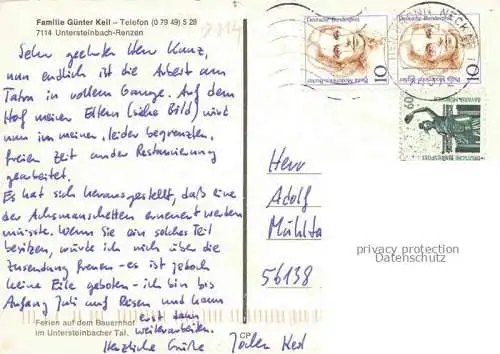 Familie Günter Keil – Telefon (0 79 49) 5 28
7114 Untersteinbach-Renzen
7114
Sehr geehrter Herr Kunz,
nun endlich ist die Arbeit am
Tatra in vollem Gange. Auf dem
Hof meiner Eltern (siehe Bild) wird
nun in meiner, leider begrenzten,
freien Zeit an der Restaurierung
gearbeitet.
Es hat sich herausgestellt, daß eine
der Achsmanschetten erneuert werden
müsste. Wenn Sie ein solches Teil
besitzen, würde ich mich über die
Zusendung freuen - es ist jedoch
keine Eile geboten - ich bin bis
Anfang Juli auf Reisen und kann
erst dann
weiterarbeiten.
Herzliche Grüße
Jochen Keil
Ferien auf dem Bauernhof
im Untersteinbacher Tal.
CP
Deutsche Bundespost
Paula Modersohn-Becker
10
Deutsche Bundespost
Paula Modersohn-Becker
10
60
BAVARIA MÜNCHEN
DEUTSCHE BUNDESPOST
NECKAR
Herr
Adolf
Mühlta
56138
privacy protection
Datenschutz